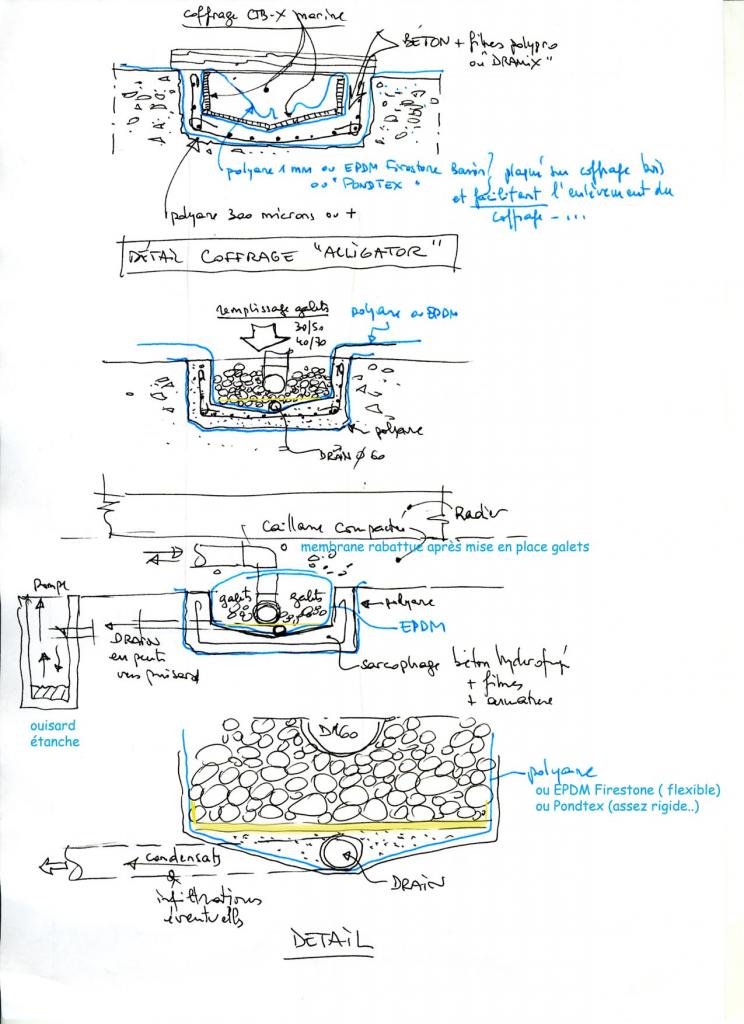 coffrage CTB-X marine
BÉTON + fibres polypro
ou DRAMIX"
polyane 1 mm ou EPDM Firestone
ou "PONDTEX"
plaqué sur coffrage bois
et facilitant l'enlèvement du
coffrage - ...
polyane 300 microns ou +
DÉTAIL COFFRAGE "ALLIGATOR"
remplissage galets
30/50
40/70
polyane ou EPDM
polyane
DRAIN Ø 60
Radier
Caillasse compactée
membrane rabattue après mise en place galets
Pompe
galets galets
polyane
EPDM
DRAIN
en pente
vers puisard
sarcophage béton hydrofugé
+ fibres
+ armature
ouisard
étanche
DN160
polyane
ou EPDM Firestone ( flexible)
ou Pondtex (assez rigide..)
condensats
&
infiltrations
éventuelles
DRAIN
DETAIL